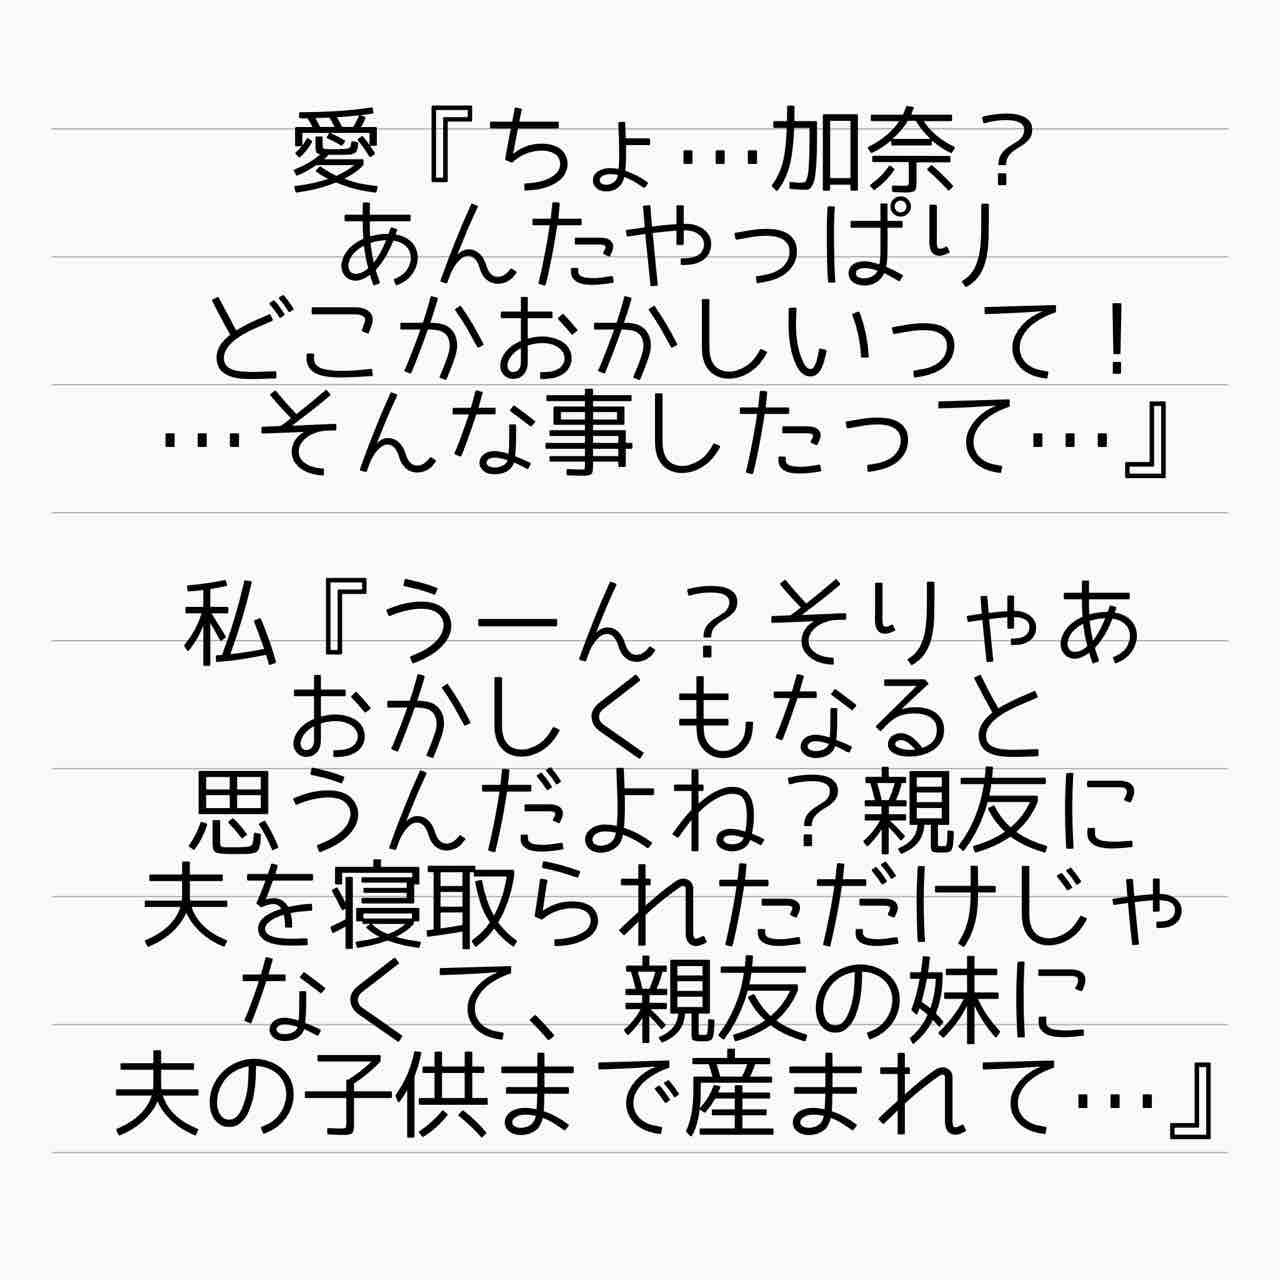 愛『ちょ…加奈？
あんたやっぱり
どこかおかしいって！
…そんな事したって…』
私『うーん？そりゃあ
おかしくもなると
思うんだよね？親友に
夫を寝取られただけじゃ
なくて、親友の妹に
夫の子供まで産まれて…』